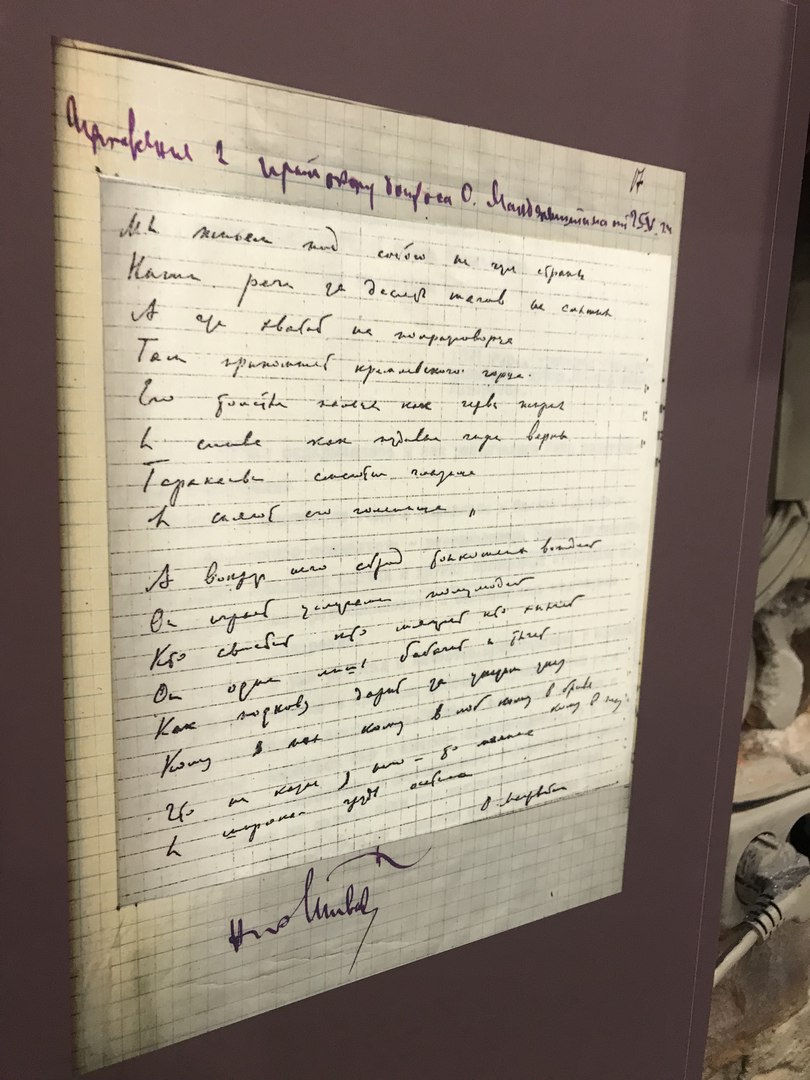 Приложение к протоколу допроса О. Мандельштама от 25.V.34
17
Мы живем под собою не чуя страны
Наши речи за десять шагов не слышны
А где хватит на полразговорца
Там припомнят кремлевского горца.
Его толстые пальцы как черви жирны
И слова как пудовые гири верны
Тараканьи смеются глазища
И сияют его голенища
А вокруг него сброд тонкошеих вождей
Он играет услугами полулюдей
Кто свистит кто мяучит кто хнычет
Он один лишь бабачит и тычет
Как подкову дарит за указом указ
Кому в пах кому в лоб кому в бровь
кому в глаз
Что ни казнь у него – то малина
И широкая грудь осетина
О. Мандельштам